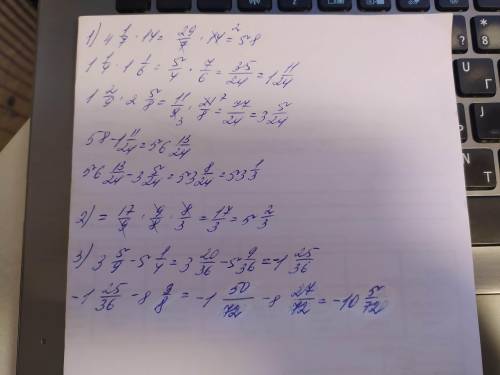 1) 4 1/7 · 14 = 29/7 · 14 2 = 58
1 1/4 · 1 1/6 = 5/4 · 7/6 = 35/24 = 1 11/24
1 2/9 · 2 5/8 = 11/9 3 · 21/8 7 = 77/24 = 3 5/24
58 - 1 11/24 = 56 13/24
56 13/24 - 3 5/24 = 53 8/24 = 53 1/3
2) = 17/9 · 9/8 · 8/3 = 17/3 = 5 2/3
3) 3 5/9 - 5 1/4 = 3 20/36 - 5 9/36 = -1 25/36
-1 25/36 - 8 9/8 = -1 50/72 - 8 27/72 = -10 5/72